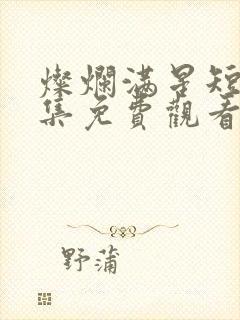 燦爛滿星短
集免費觀看
野蒲